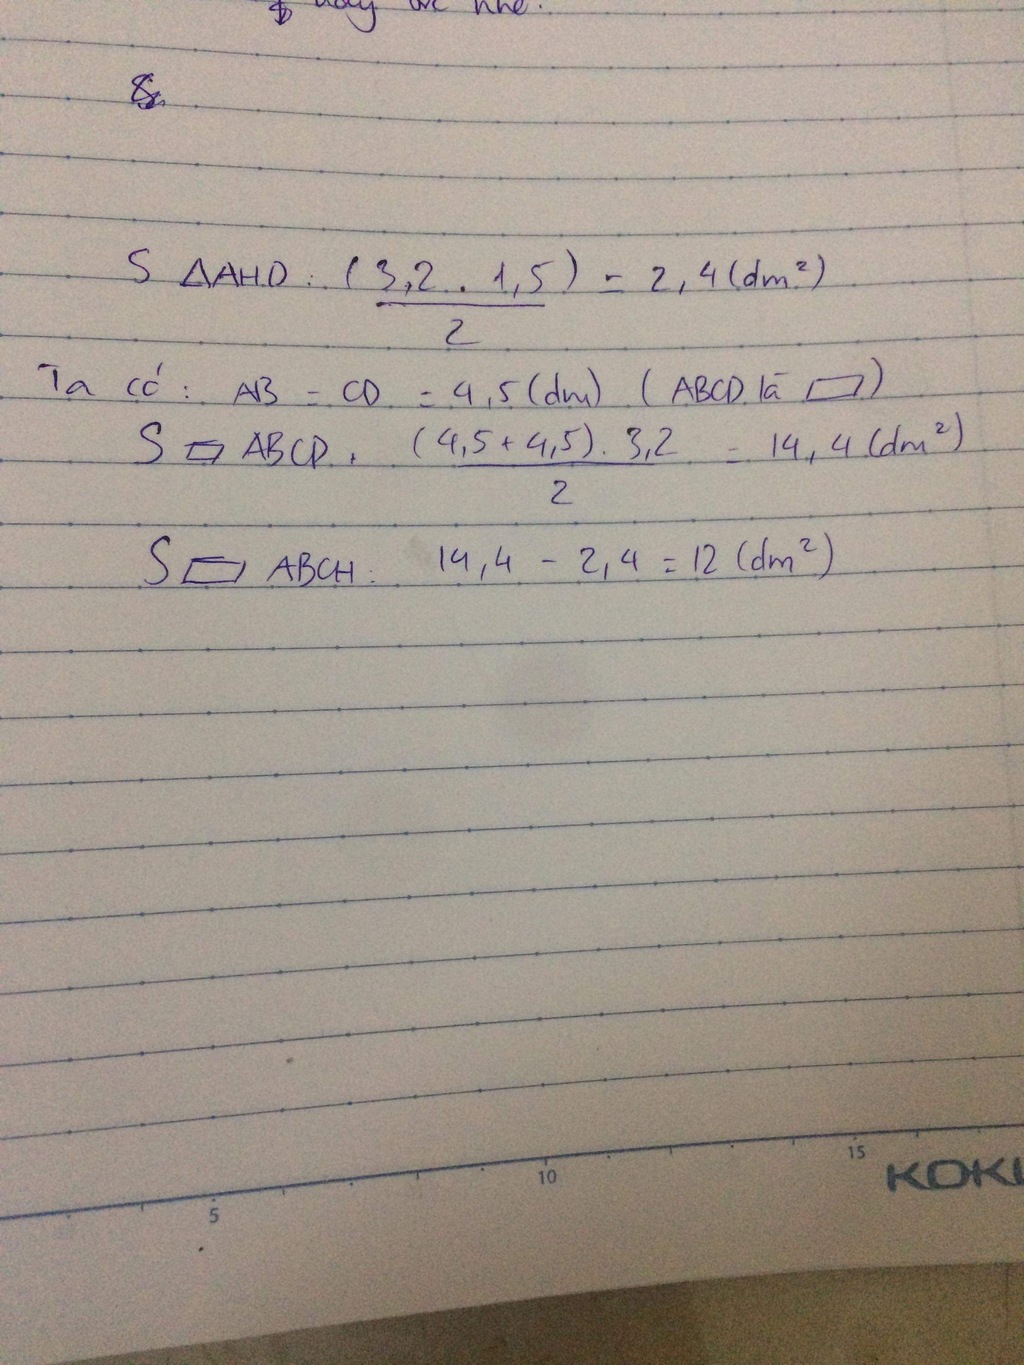 nhé.
S ΔAHD: (3,2 . 1,5) = 2,4 (dm²)
2
Ta có: AB = CD = 4,5 (dm) (ABCD là ▱)
S ▱ ABCD. (4,5 + 4,5). 3,2 = 14,4 (dm²)
2
S ▱ ABCH: 14,4 - 2,4 = 12 (dm²)
5 10 15